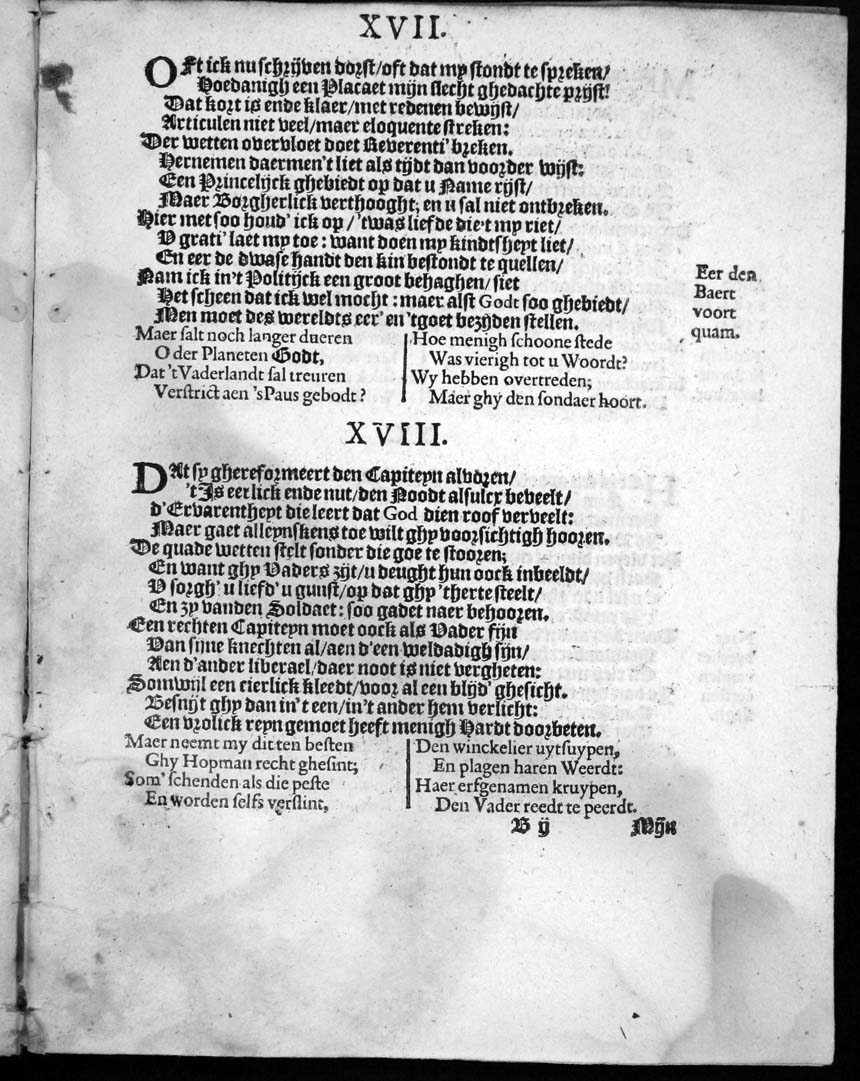 XVII.
Oft ick nu schrijven dorst/oft dat my stondt te spreken/
Hoedanigh een Placaet mijn slecht ghedachte prijst!
Dat kort is ende klaer/met redenen bewijst/
Articulen niet veel/maer eloquente streken:
Der wetten overvloet doet Reverenti' breken.
Hernemen daermen't liet als tijdt dan voorder wijst:
Een Princelijck ghebiedt op dat u Name rijst/
Maer Borgherlick verthooght; en u sal niet ontbreken.
Hier met soo houd' ick op/'twas liefde die't my riet/
V grati' laet my toe: want doen my kindtsheyt liet/
En eer de dwase handt den kin bestondt te quellen/
Nam ick in't Politijck een groot behaghen/siet
Het scheen dat ick wel mocht: maer alst Godt soo ghebiedt/
Men moet des wereldts eer' en 'tgoet bezijden stellen.
Eer den
Baert
voort
quam.
Maer salt noch langer dueren
O der Planeten Godt,
Dat 't Vaderlandt sal treuren
Verstrict aen 's Paus gebodt?
Hoe menigh schoone stede
Was vierigh tot u Woordt?
Wy hebben overtreden;
Maer ghy den sondaer hoort.
XVIII.
DAt sy ghereformeert den Capiteyn alvoren/
't Is eerlick ende nut/den Noodt alsulcx beveelt/
d'Ervarentheyt die leert dat God dien roof verveelt:
Maer gaet alleynskens toe wilt ghy voorsichtigh hooren.
De quade wetten stelt sonder die goe te stooren;
En want ghy Vaders zijt/u deught hun oock inbeeldt/
V sorgh' u liefd' u gunst/op dat ghy 'therte steelt/
En zy vanden Soldaet: soo gadet naer behooren.
Een rechten Capiteyn moet oock als Vader sijn
Van sijne knechten al/aen d'een weldadigh sijn/
Aen d'ander liberael/daer noot is niet vergheten:
Somwijl een cierlick kleedt/voor al een blijd' ghesicht.
Besnijt ghy dan in't een/in't ander hem verlicht:
Een vrolick reyn gemoet heeft menigh Hardt doorbeten.
Maer neemt my dit ten besten
Ghy Hopman recht ghesint;
Som' schenden als die peste
En worden selfs verslint,
Den winckelier uytsuypen,
En plagen haren Weerdt:
Haer erfgenamen kruypen,
Den Vader reedt te peerdt.
B ij
Mijn